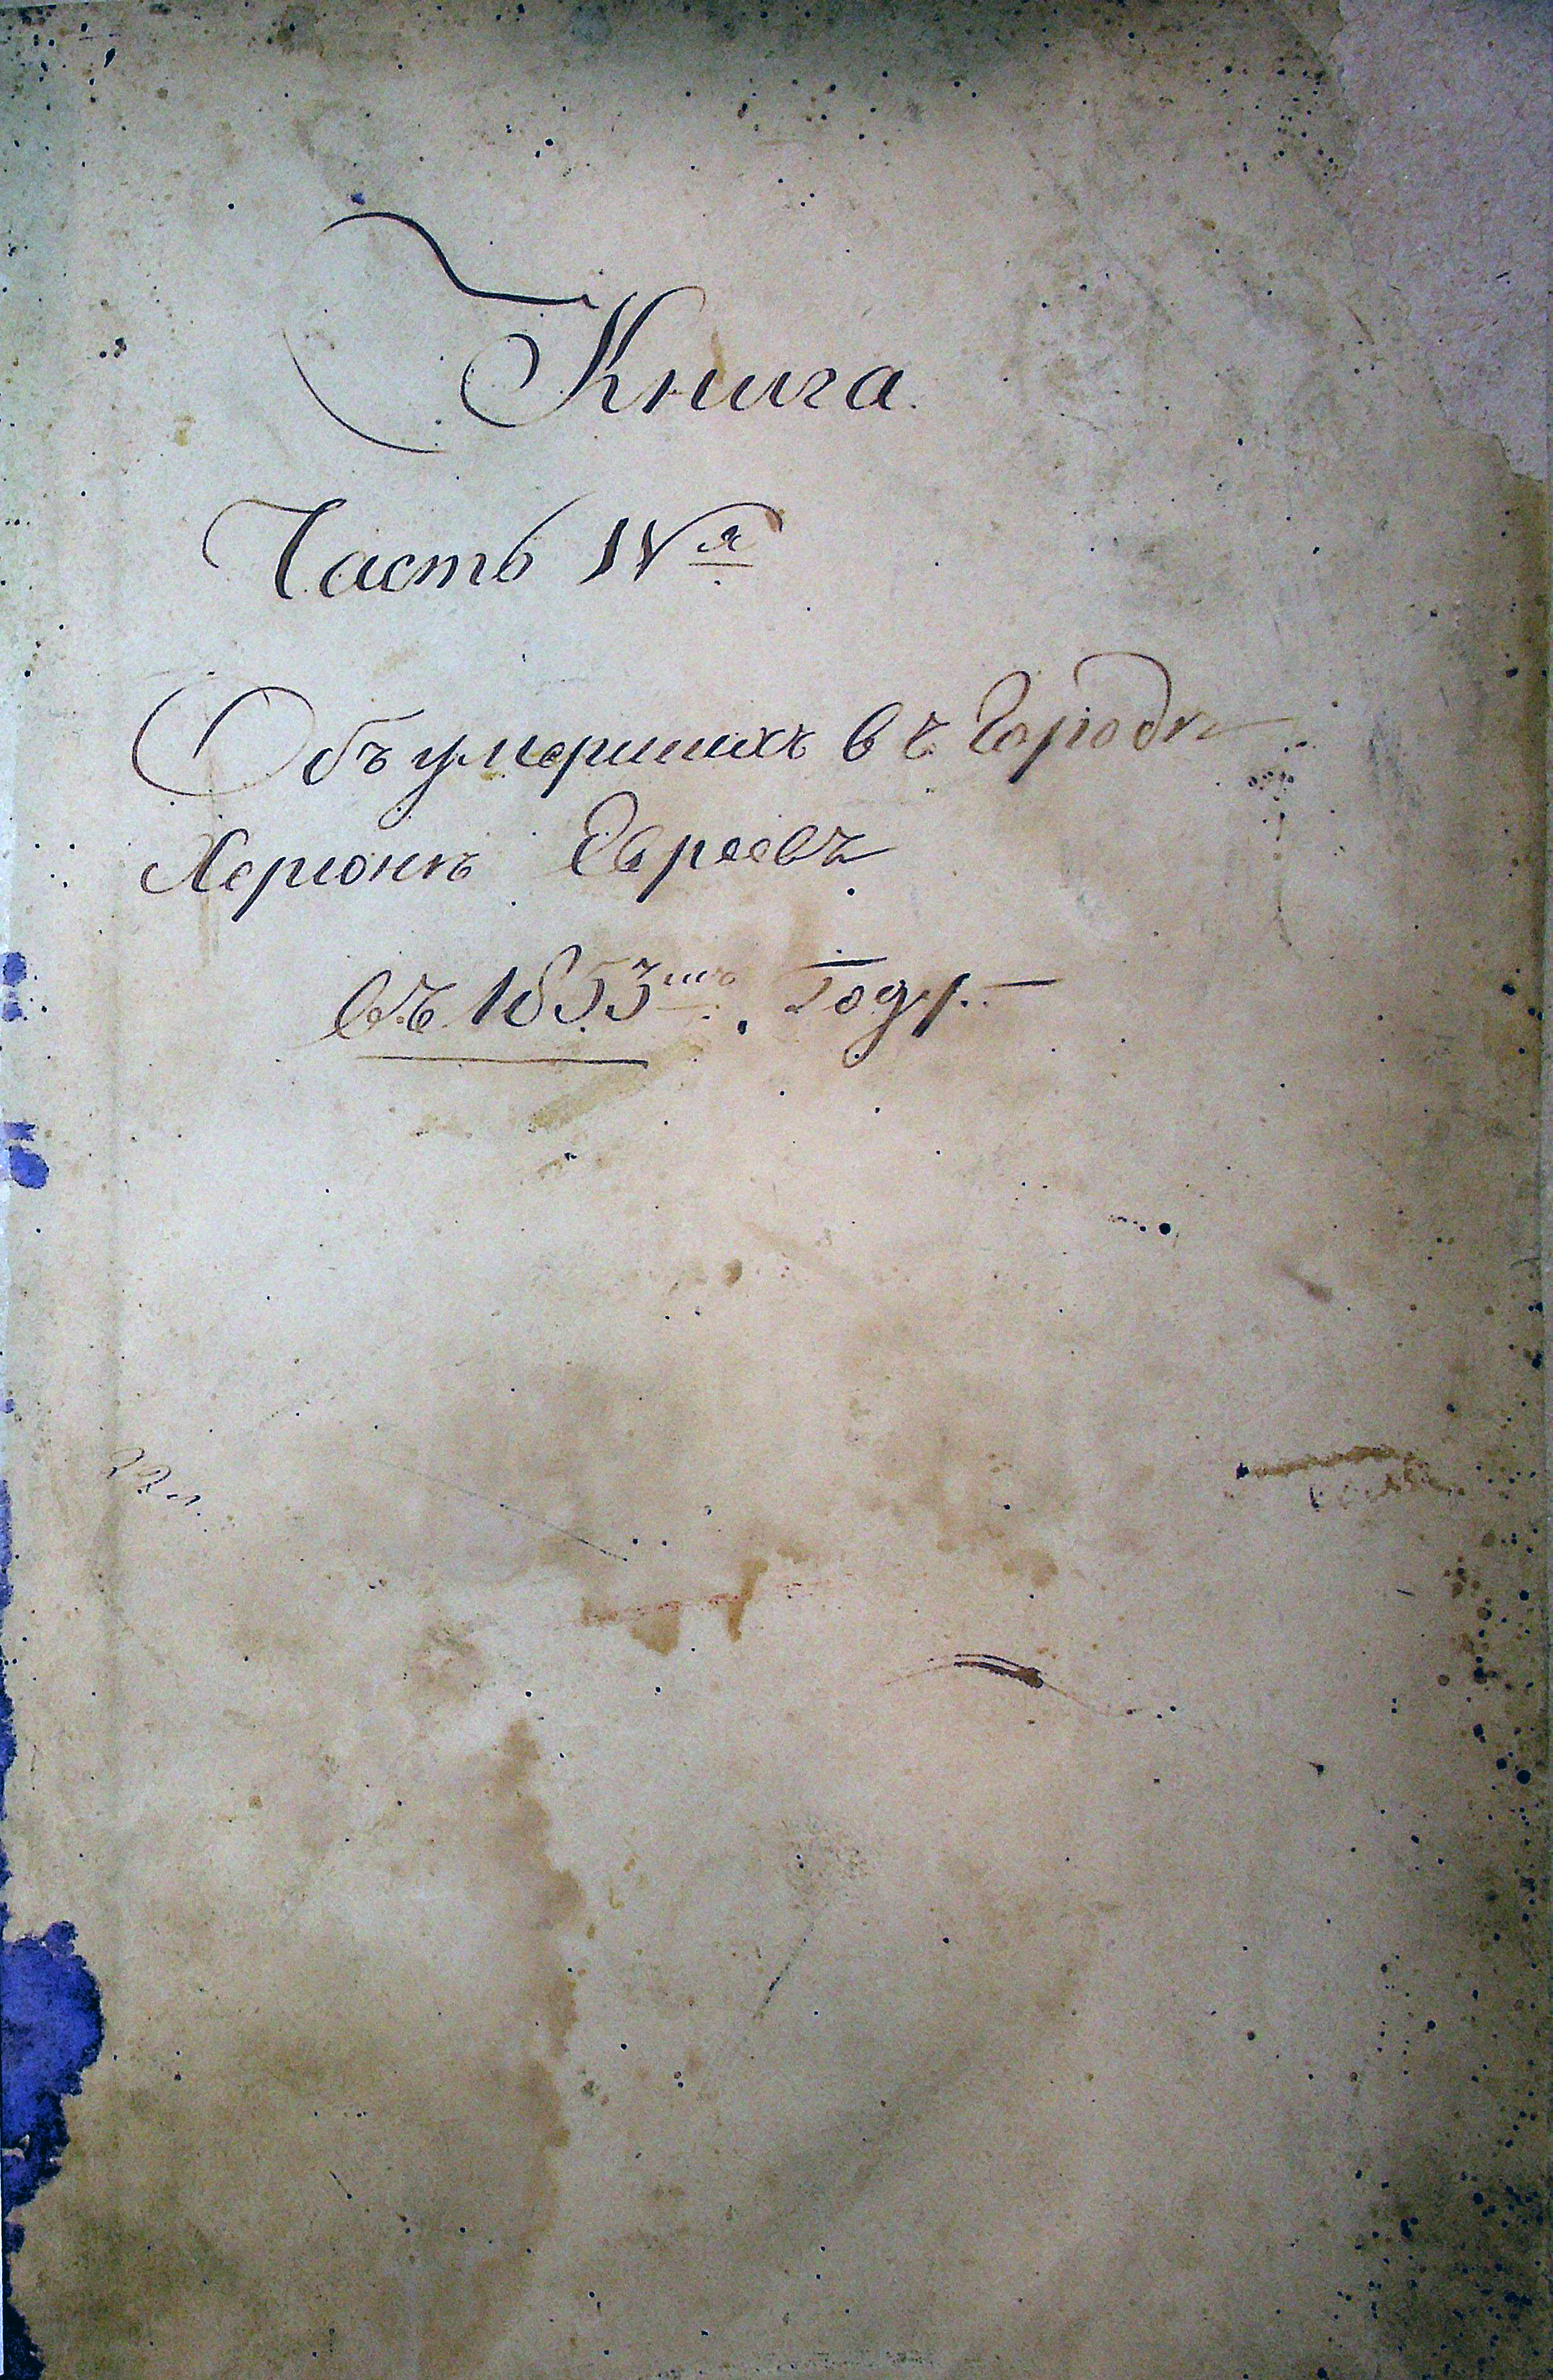 Книга
Часть IVя
Объ умершихъ въ Городѣ
Херсонѣ Евреевъ
въ 1853мъ Году.
22 л.